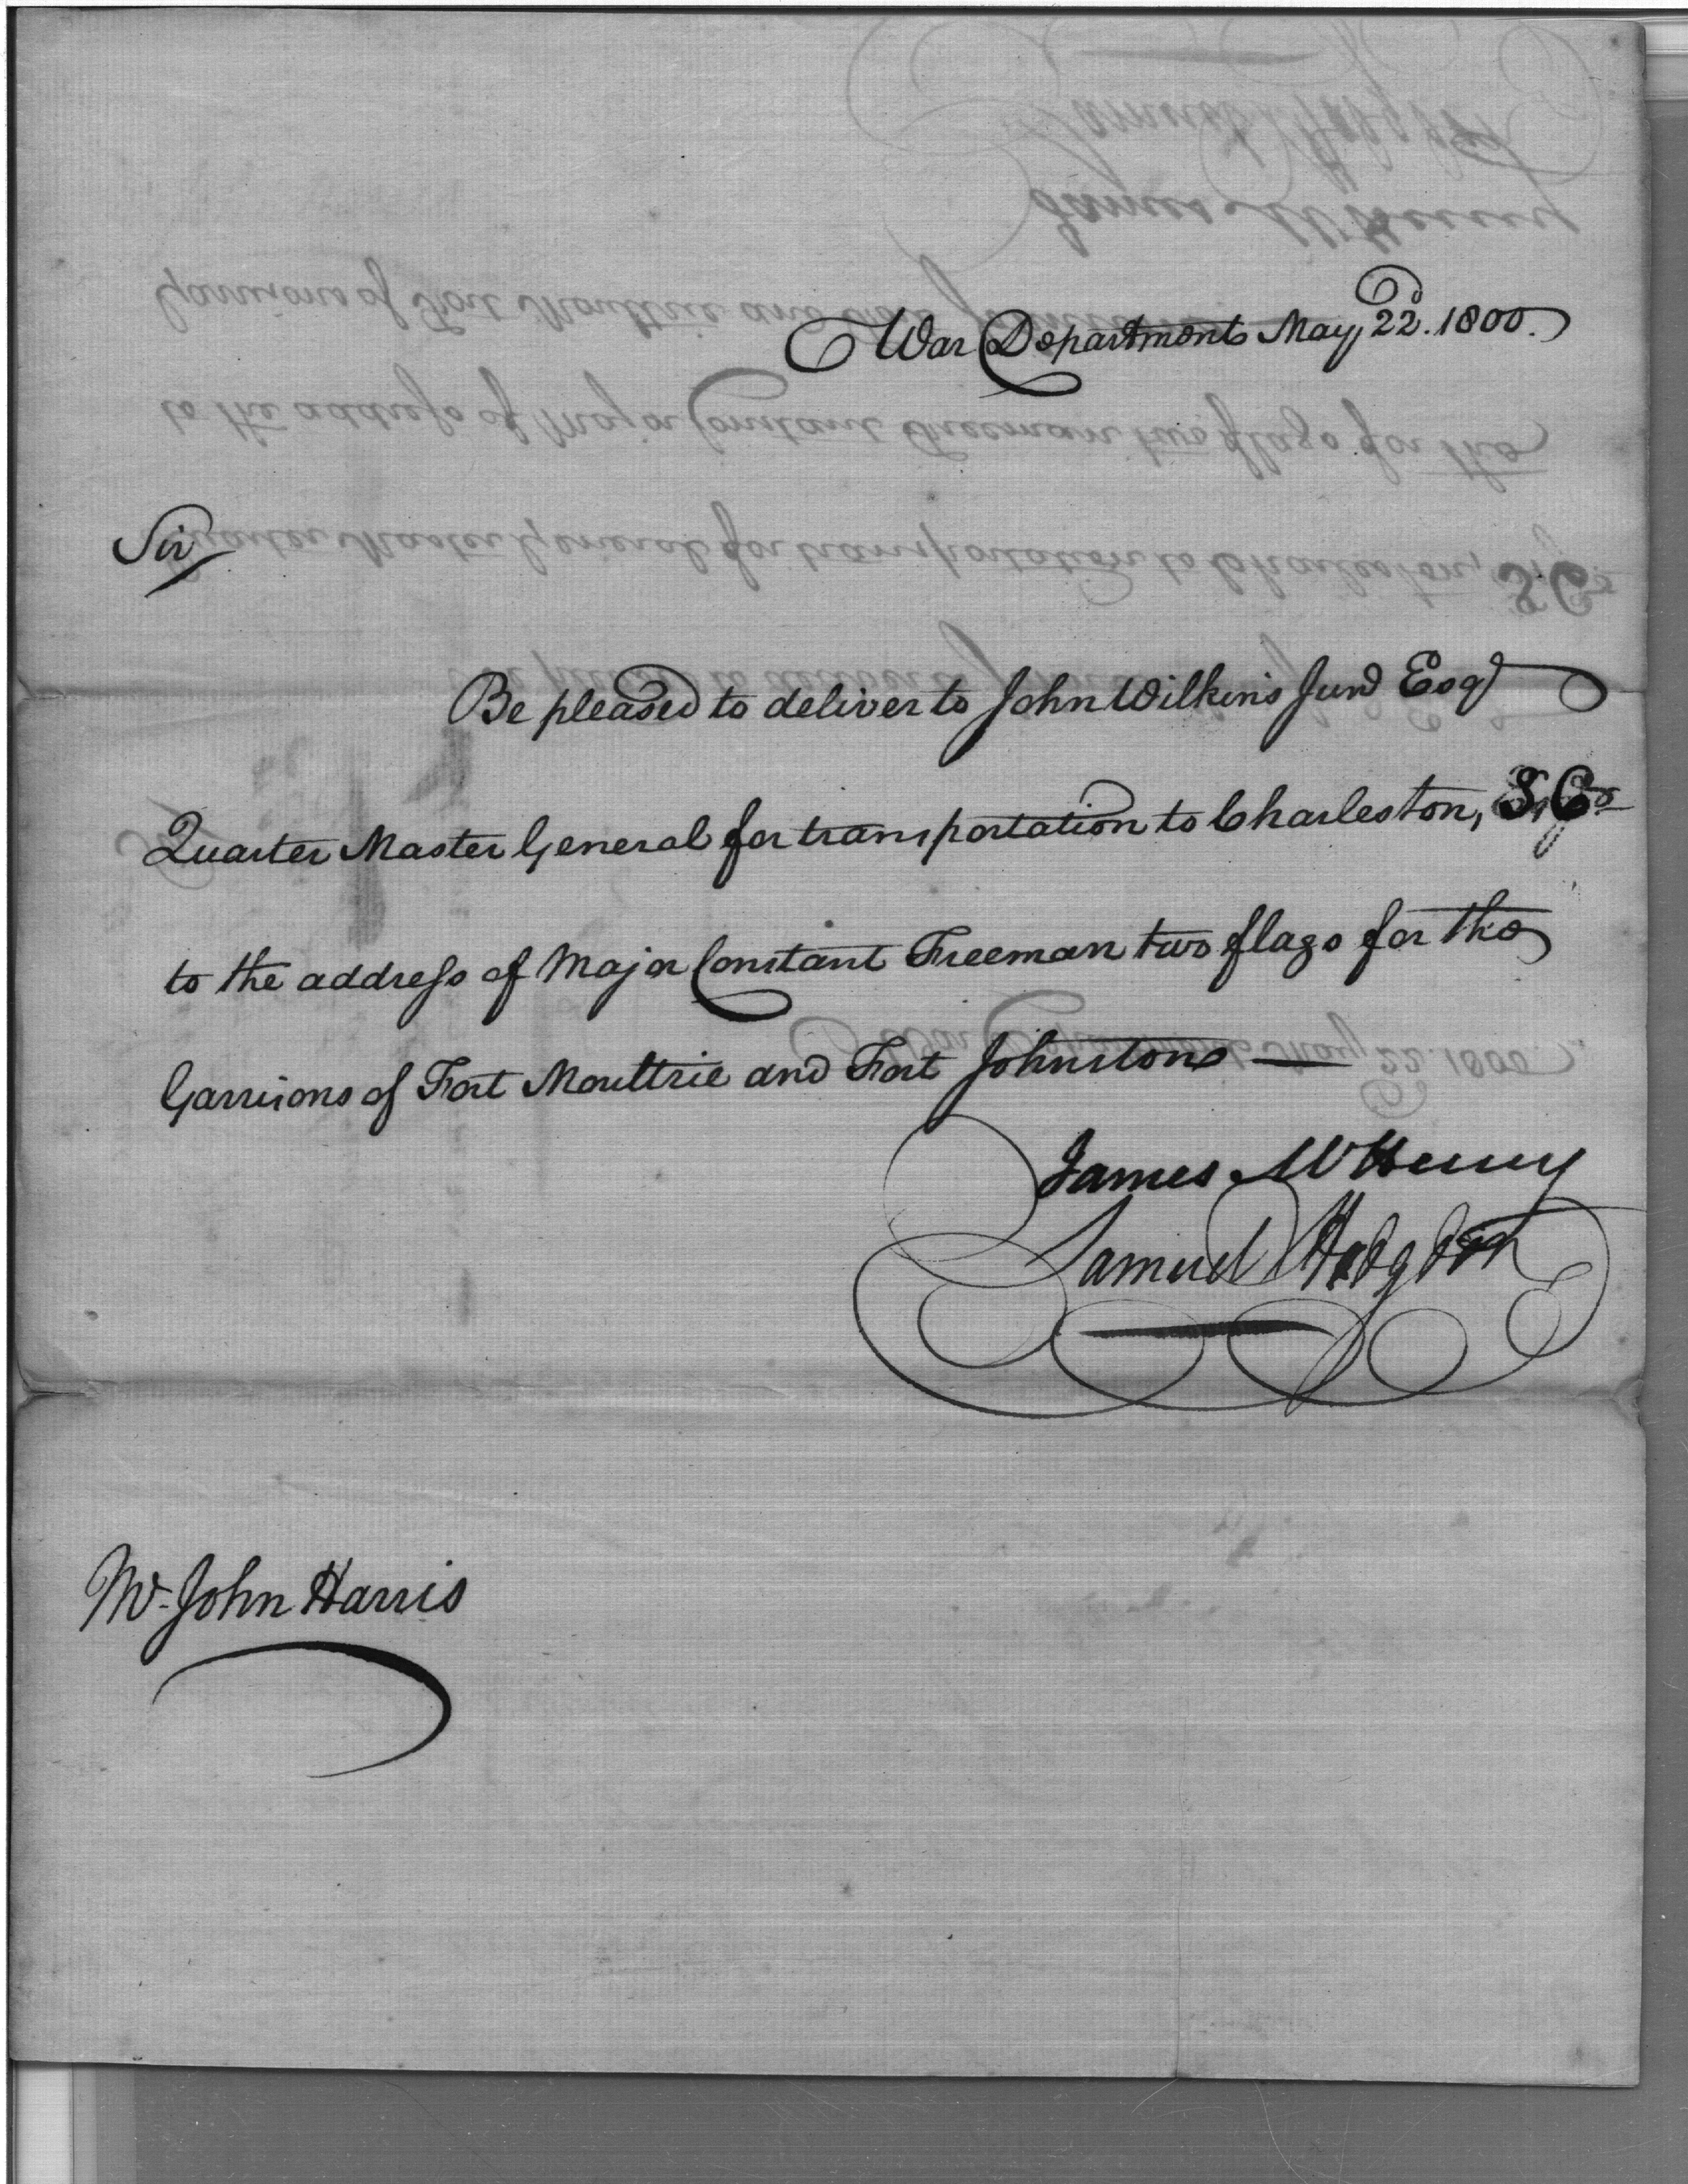 War Department May, 22d. 1800.
Sir
Be pleased to deliver to John Wilkins Junr Esqr
Quarter Master General for transportation to Charleston, S, Co
to the address of Major Constant Freeman two flags for the
Garrisons of Fort Moultrie and Fort Johnstone —
James McHenry
Samuel Hodgdon
Mr. John Harris